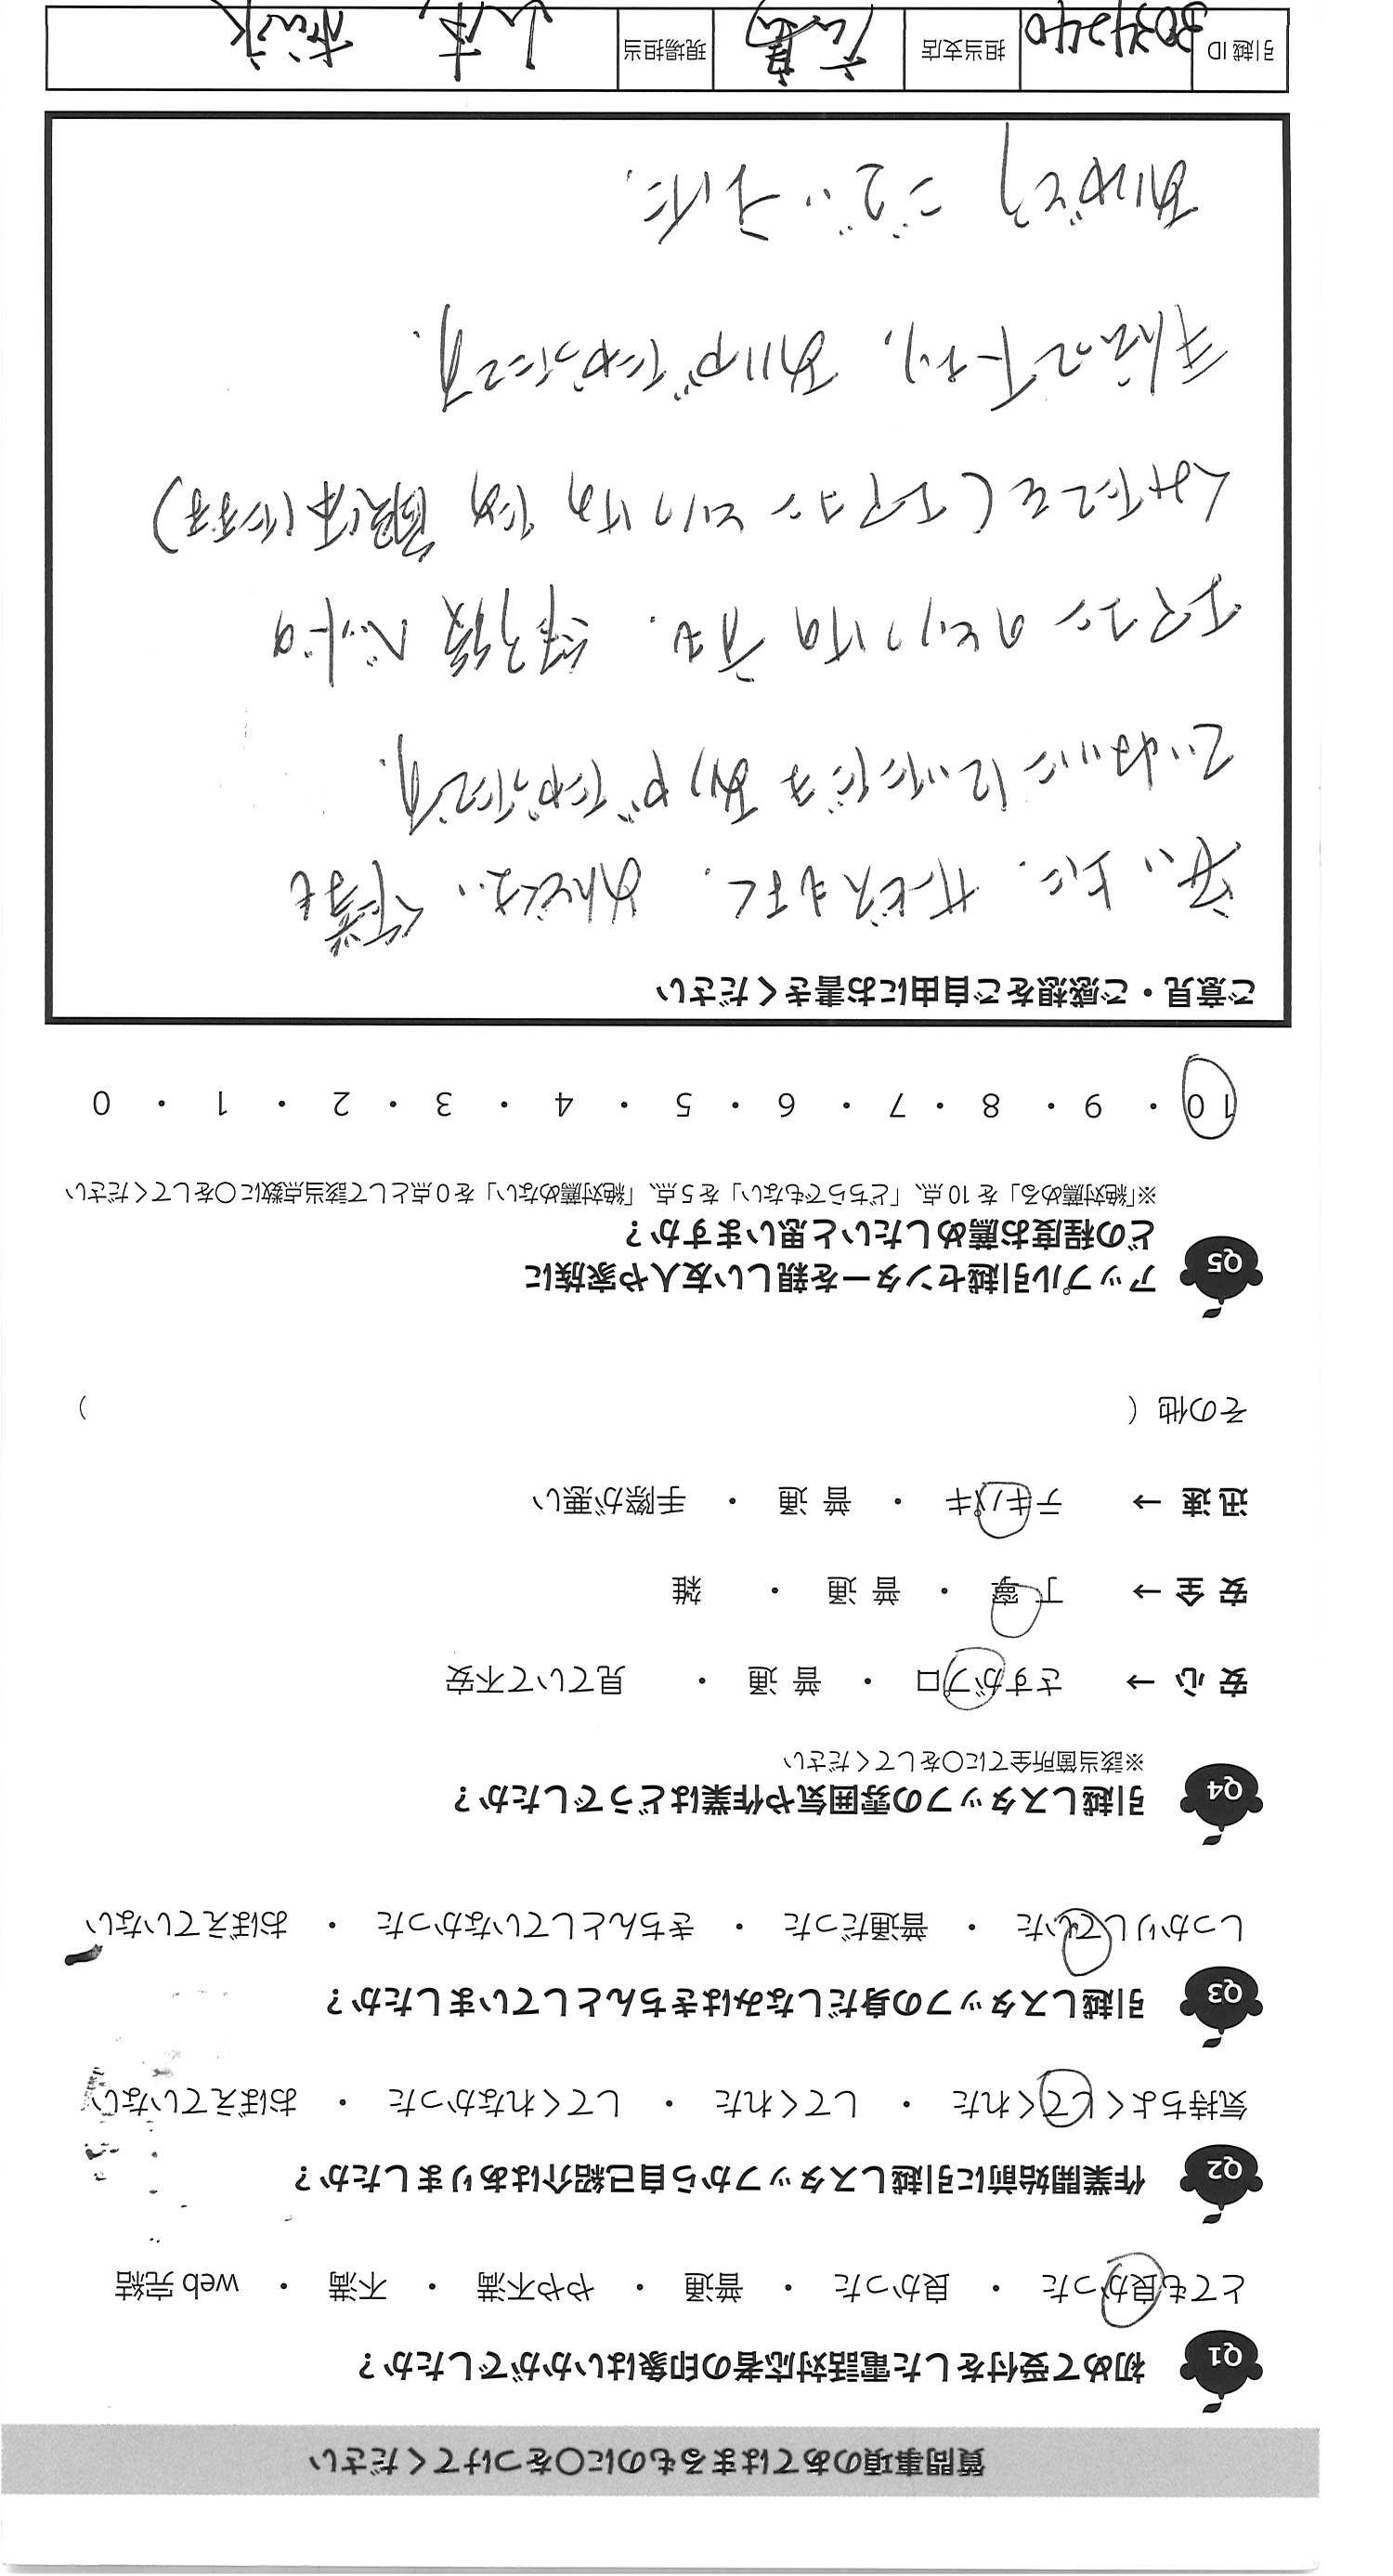 質問事項のあてはまるものに〇をつけてください
Q1 初めて受付をした電話対応者の印象はいかがでしたか？
とても良かった ・ 良かった ・ 普通 ・ やや不満 ・ 不満 ・ web 完結
Q2 作業開始前に引越しスタッフから自己紹介はありましたか？
気持ちよくしてくれた ・ してくれた ・ してくれなかった ・ おぼえていない
Q3 引越しスタッフの身だしなみはきちんとしていましたか？
しっかりしていた ・ 普通だった ・ きちんとしていなかった ・ おぼえていない
Q4 引越しスタッフの雰囲気や作業はどうでしたか？
※該当箇所全てに〇をしてください
安 心 → さすがプロ ・ 普 通 ・ 見ていて不安
安 全 → 丁 寧 ・ 普 通 ・ 雑
迅 速 → テキパキ ・ 普 通 ・ 手際が悪い
その他 （ ）
Q5 アップル引越センターを親しい友人や家族に
どの程度お薦めしたいと思いますか？
※「絶対薦める」を 10 点、「どちらでもない」を 5 点、「絶対薦めない」を 0 点として該当点数に〇をしてください
10 ・ 9 ・ 8 ・ 7 ・ 6 ・ 5 ・ 4 ・ 3 ・ 2 ・ 1 ・ 0
ご意見・ご感想をご自由にお書きください
安い上に、サービスもよく、めんどくさい作業も
ていねいにしていただきありがたかったです。
エアコンのとりつけ方も、 ベッドの
しみたてを(エアコンとりつけのため
手伝って下さり、ありがたかったです。
ありがとうございました。
引越 ID 3034240 担当支店 広島 現場担当 松永